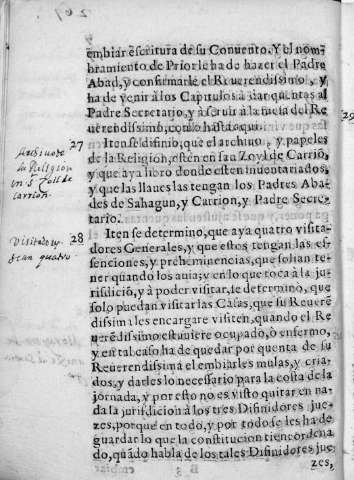 embiar escritura de su Conuento. Y el nom-
bramiento de Prior le ha de hazer el Padre
Abad, y confirmarle el Reuerendissimo, y
ha de venir à los Capitulos à dar quentas al
Padre Secretario, y à seruir a la mesa del Re
uerendissimo, como hasta aqui.
27 Iten se difinio, que el archiuo, y papeles
de la Religion, estèn en san Zoyl de Carriõ,
y que aya libro donde estèn inuentariados,
y que las llaues las tengan los Padres Aba-
des de Sahagun, y Carrion, y Padre Secre-
tario.
28 Iten se determino, que aya quatro visita-
dores Generales, y que estos tengan las es-
senciones, y preheminencias, que solian te-
ner quando los auia; y en lo que toca à la ju-
risdiciõ, y à poder visitar, se determino, que
solo puedan visitar las Casas, que su Reuerẽ
dissima les encargare visiten, quando el Re
uerẽdissimo estuuiere ocupado, ò enfermo,
y en tal caso ha de quedar por quenta de su
Reuerendissima el embiarles mulas, y cria-
dos, y darles lo necessario para la costa de la
jornada, y por esto no es visto quitar en na-
da la jurisdicion à los tres Difinidores jue-
zes, porque en todo, y por todo se les ha de
guardar lo que la constitucion tiene ordena
do, quãdo habla de los tales Difinidores jue
zes,
Archiuo de
la Religion
en S. Zoil de
carrion.
Visitadores
sean quatro